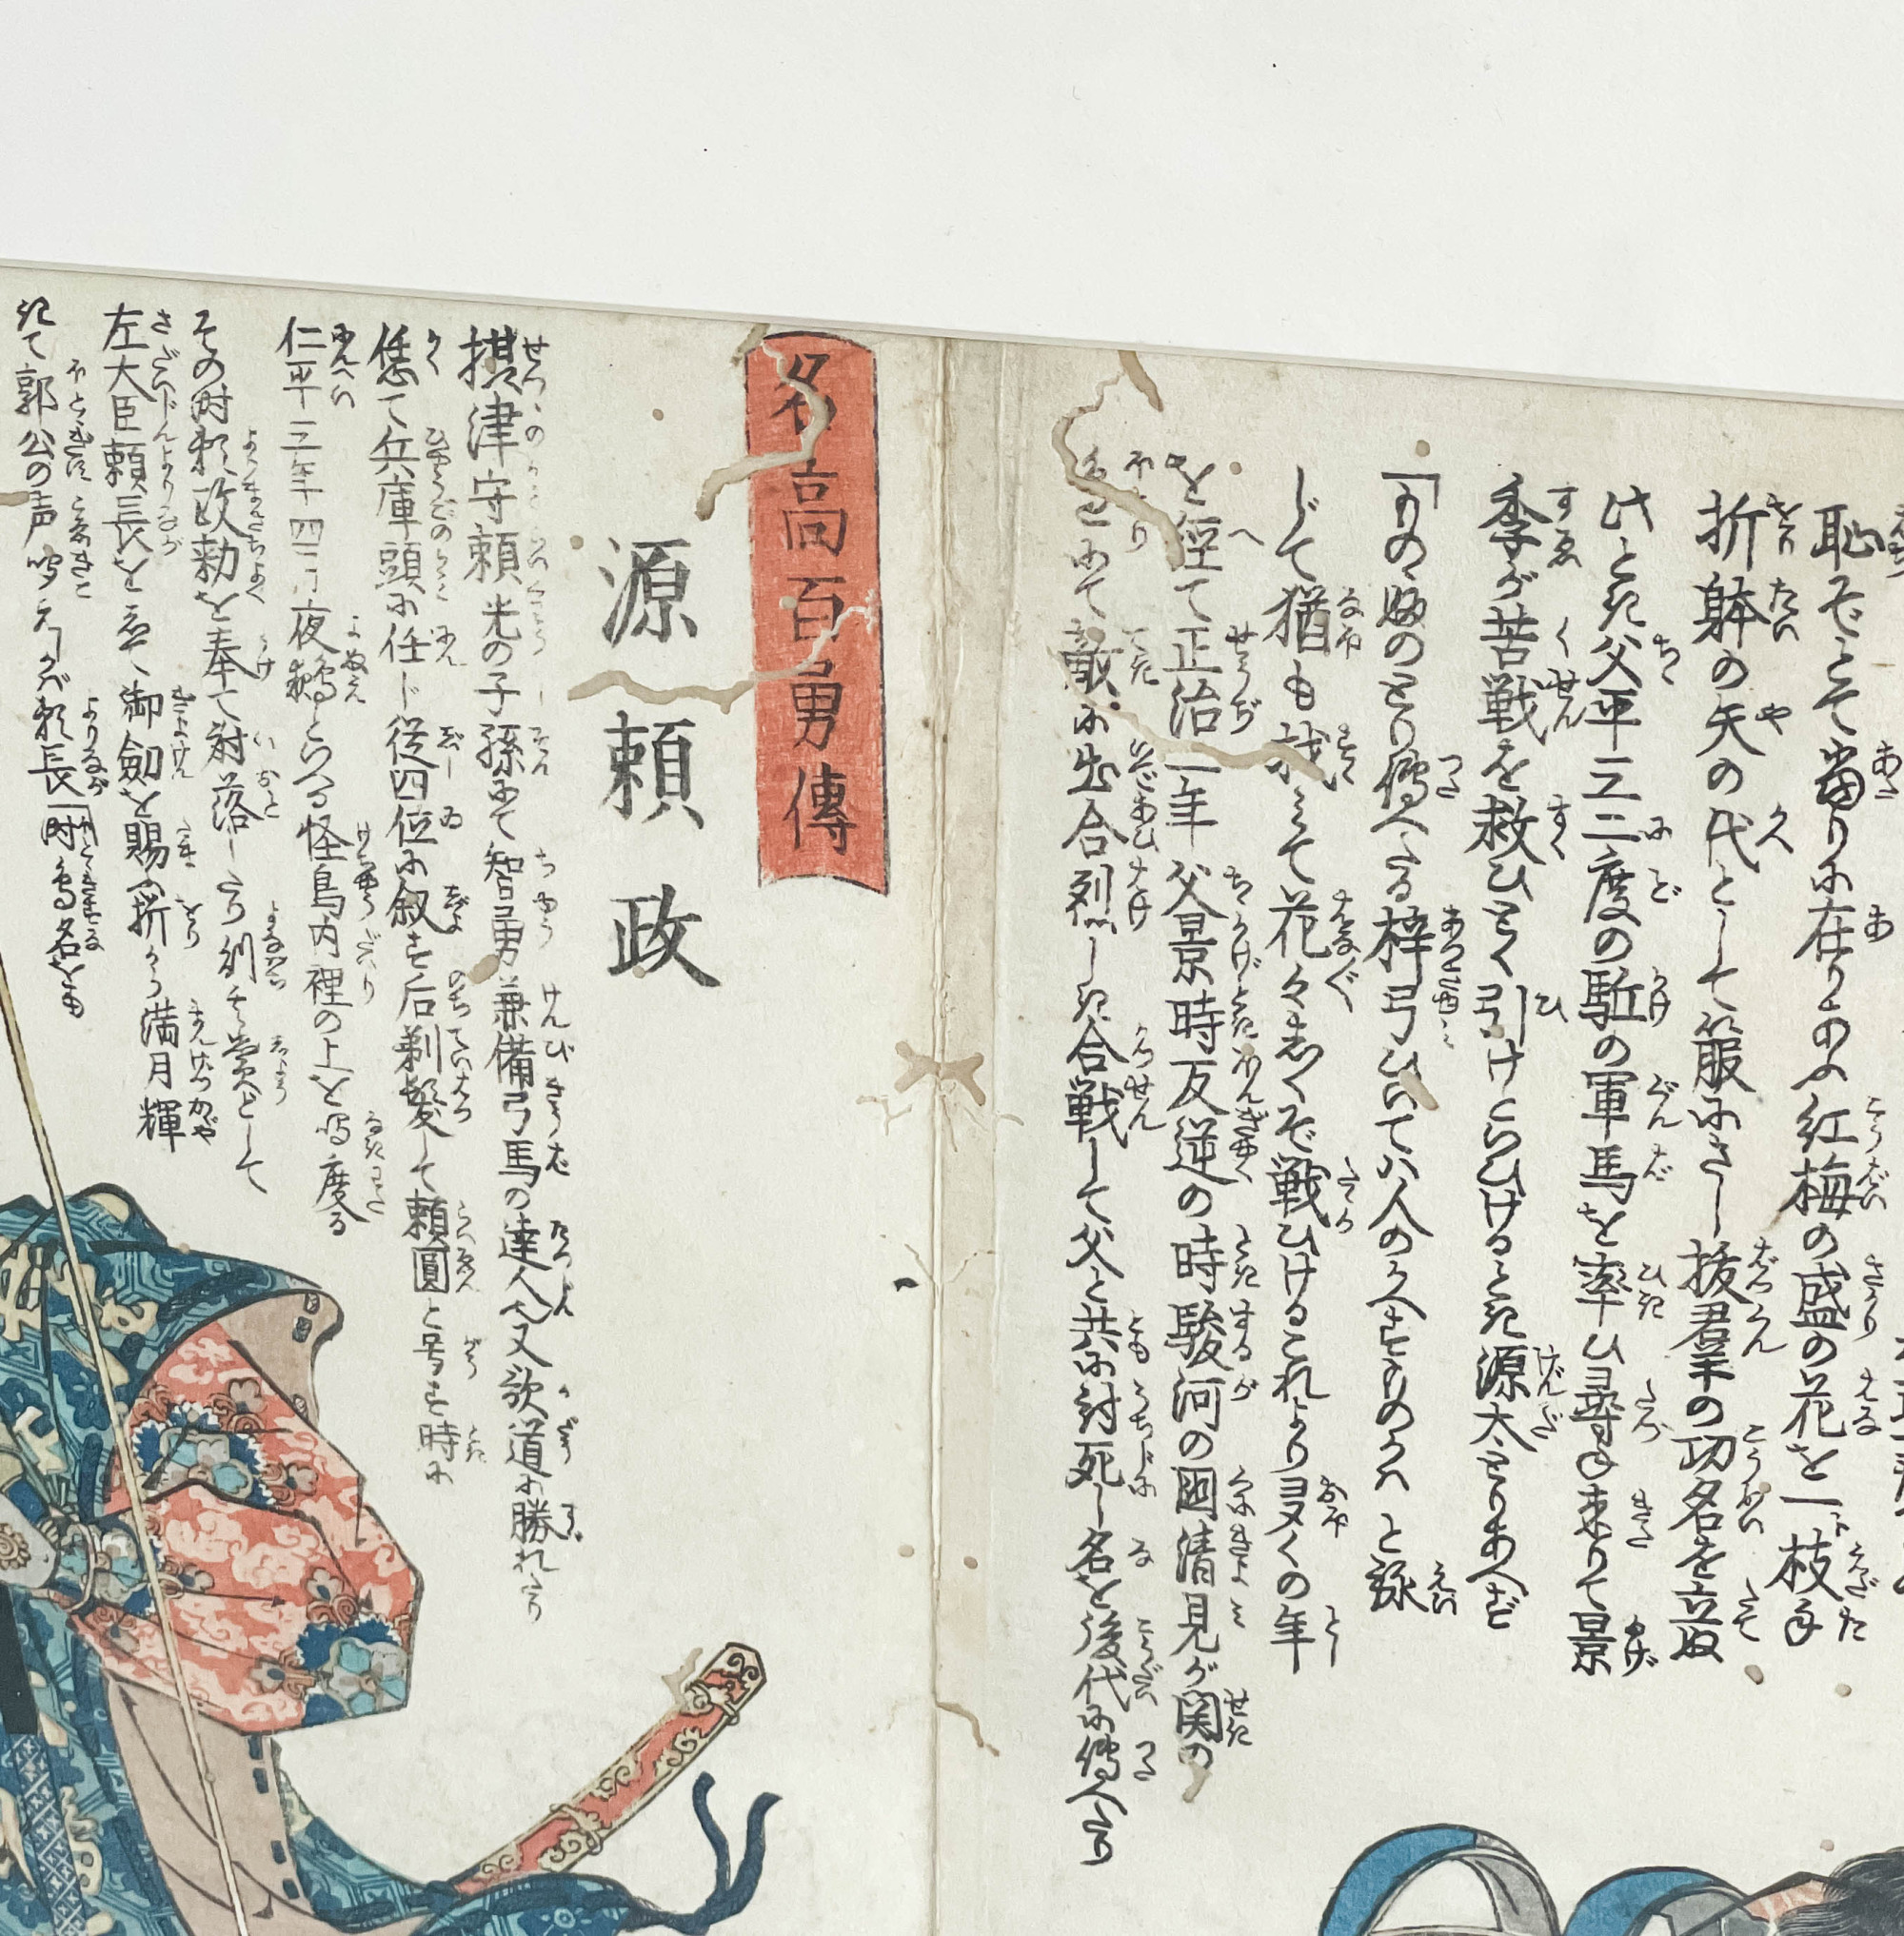 恥ぞとて當りに在りあふ紅梅の盛の花を一枝手
折躰の矢の代として箙にさし抜群の功名を立ぬ
此とき父平三二度の駈の軍馬を率ひ尋ね来りて景
季が苦戦を救ひとく引けとらひけるとき源太とりあへず
「ものゝふのとり傳へたる梓弓ひいては人のかへすものかは と詠
じて猶も残して花々しくぞ戦ひけるこれより多くの年
を経て正治二年父景時反逆の時駿河の國清見が関の
にて敵に出合烈しき合戦して父と共に討死し名を後代に傳へたり
名高百勇傳
源頼政
摂津守頼光の子孫にて智勇兼備弓馬の達人又歌道に勝れたり
兵庫頭に任じ従四位に叙す后剃髪して頼圓と号す時に
仁平三年四月夜鵺といへる怪鳥内裡の上を鳴度る
その時頼政勅を奉て射落したり則其賞として
左大臣頼長を以て御劔を賜ふ折から満月輝
きて郭公の声聞えければ頼長「時鳥名をも